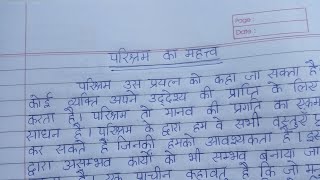 Page:
Date:
परिश्रम का महत्त्व
परिश्रम उस प्रयत्न को कहा जा सकता है
कोई व्यक्ति अपने उद्देश्य की प्राप्ति के लिए
करता है। परिश्रम तो मानव की प्रगति का एकमा
साधन है। परिश्रम के द्वारा हम वे सभी वस्तुएँ
कर सकते हैं जिनकी हमको आवश्यकता है। इस
द्वारा असम्भव कार्यों को भी सम्भव बनाया जा
है। एक प्राचीन कहावत है कि जो